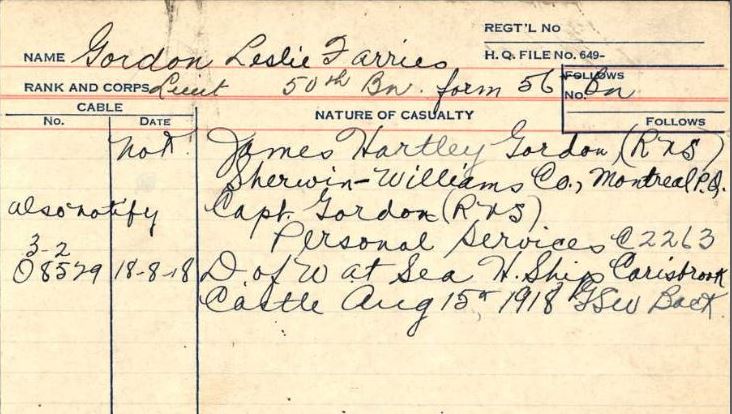 REGT'L No
NAME Gordon Leslie Farries
H. Q. FILE No. 649-
RANK AND CORPS Lieut 50th Bn. form 56 Bn
FOLLOWS
No.
CABLE
No. DATE
NATURE OF CASUALTY
FOLLOWS
Not. James Hartley Gordon, (RNS)
Sherwin-Williams Co., Montreal P.Q.
also notify Capt. Gordon (RNS)
Personal Services C2263
3-2
O8529 18-8-18 D. of W at Sea H. Ship Carisbrook
Castle Aug 15th, 1918 GSW Back.